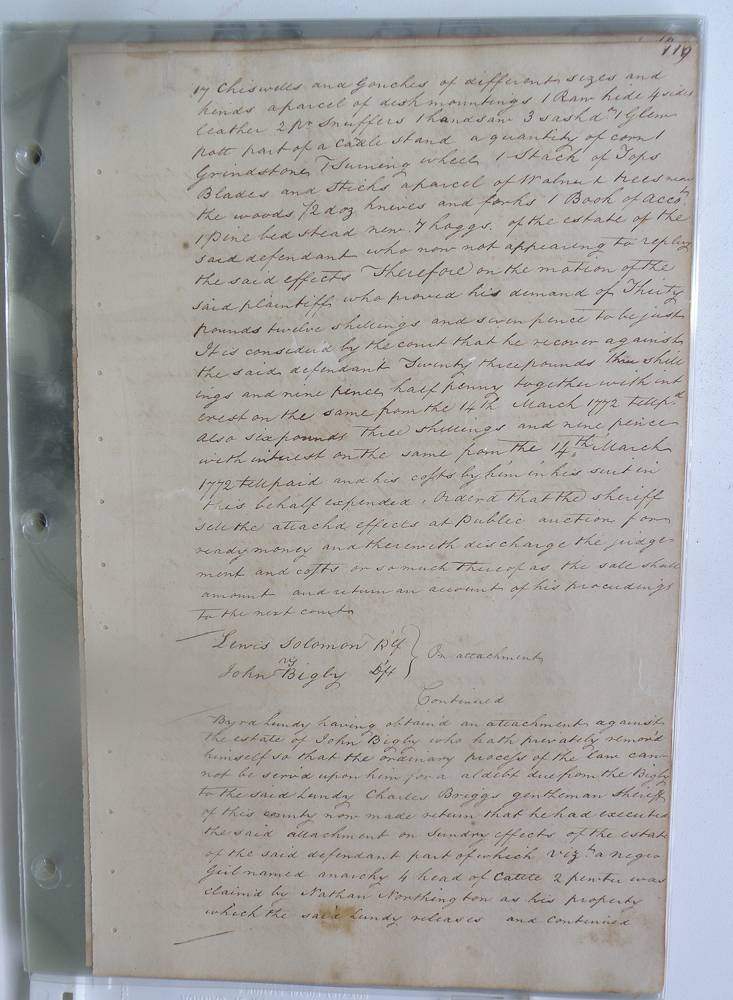 119
17 Chiswells and Gouches of different sizes and
kinds a parcel of desk mountings 1 Raw hide 4 sides
leather 2 pr Snuffers 1 handsaw 3 sash do 1 Glew
pott part of a Cadle stand a quantity of corn 1
Grindstone 1 Turning wheel 1 Stack of Tops
Blades and Sticks a parcel of Walnut trees near
the woods 1/2 doz knives and forks 1 Book of Accots
1 pine bed stead new 7 hoggs. of the estate of the
said defendant who now not appearing to replevy
the said effects Therefore on the motion of the
said plaintiff who proved his demand of Thirty
pounds twelve shillings and seven pence to be just
It is considerd by the court that he recover against
the said defendant Twenty three pounds three shill
ings and nine pence half penny together with int
erest on the same from the 14th March 1772 till pd
also six pounds three shillings and nine pence
with interest on the same from the 14th March
1772 till paid and his costs by him in his suit in
this behalf expended. Orderd that the sheriff
sell the attachd effects at Public auction for
ready money and therewith discharge the judge-
ment and costs or so much thereof as the sale shall
amount and return an account of his proceedings
to the next court
Lewis Solomon Plf
vs
John Bigby Dft
On attachment
Continued
Byrd Lundy having obtain'd an attachment against
the estate of John Bigby who hath privately remov'd
himself so that the ordinary process of the law can-
not be serv'd upon him for a debt due from the Bigby
to the said Lundy Charles Briggs gentleman Sheriff
of this county now made return that he had executed
the said attachment on Sundry effects of the estate
of the said defendant part of which vizt a negro
Girl named anarchy 4 head of Cattle 2 pewter was
claim'd by Nathan Northington as his property
which the said Lundy releases and Continued